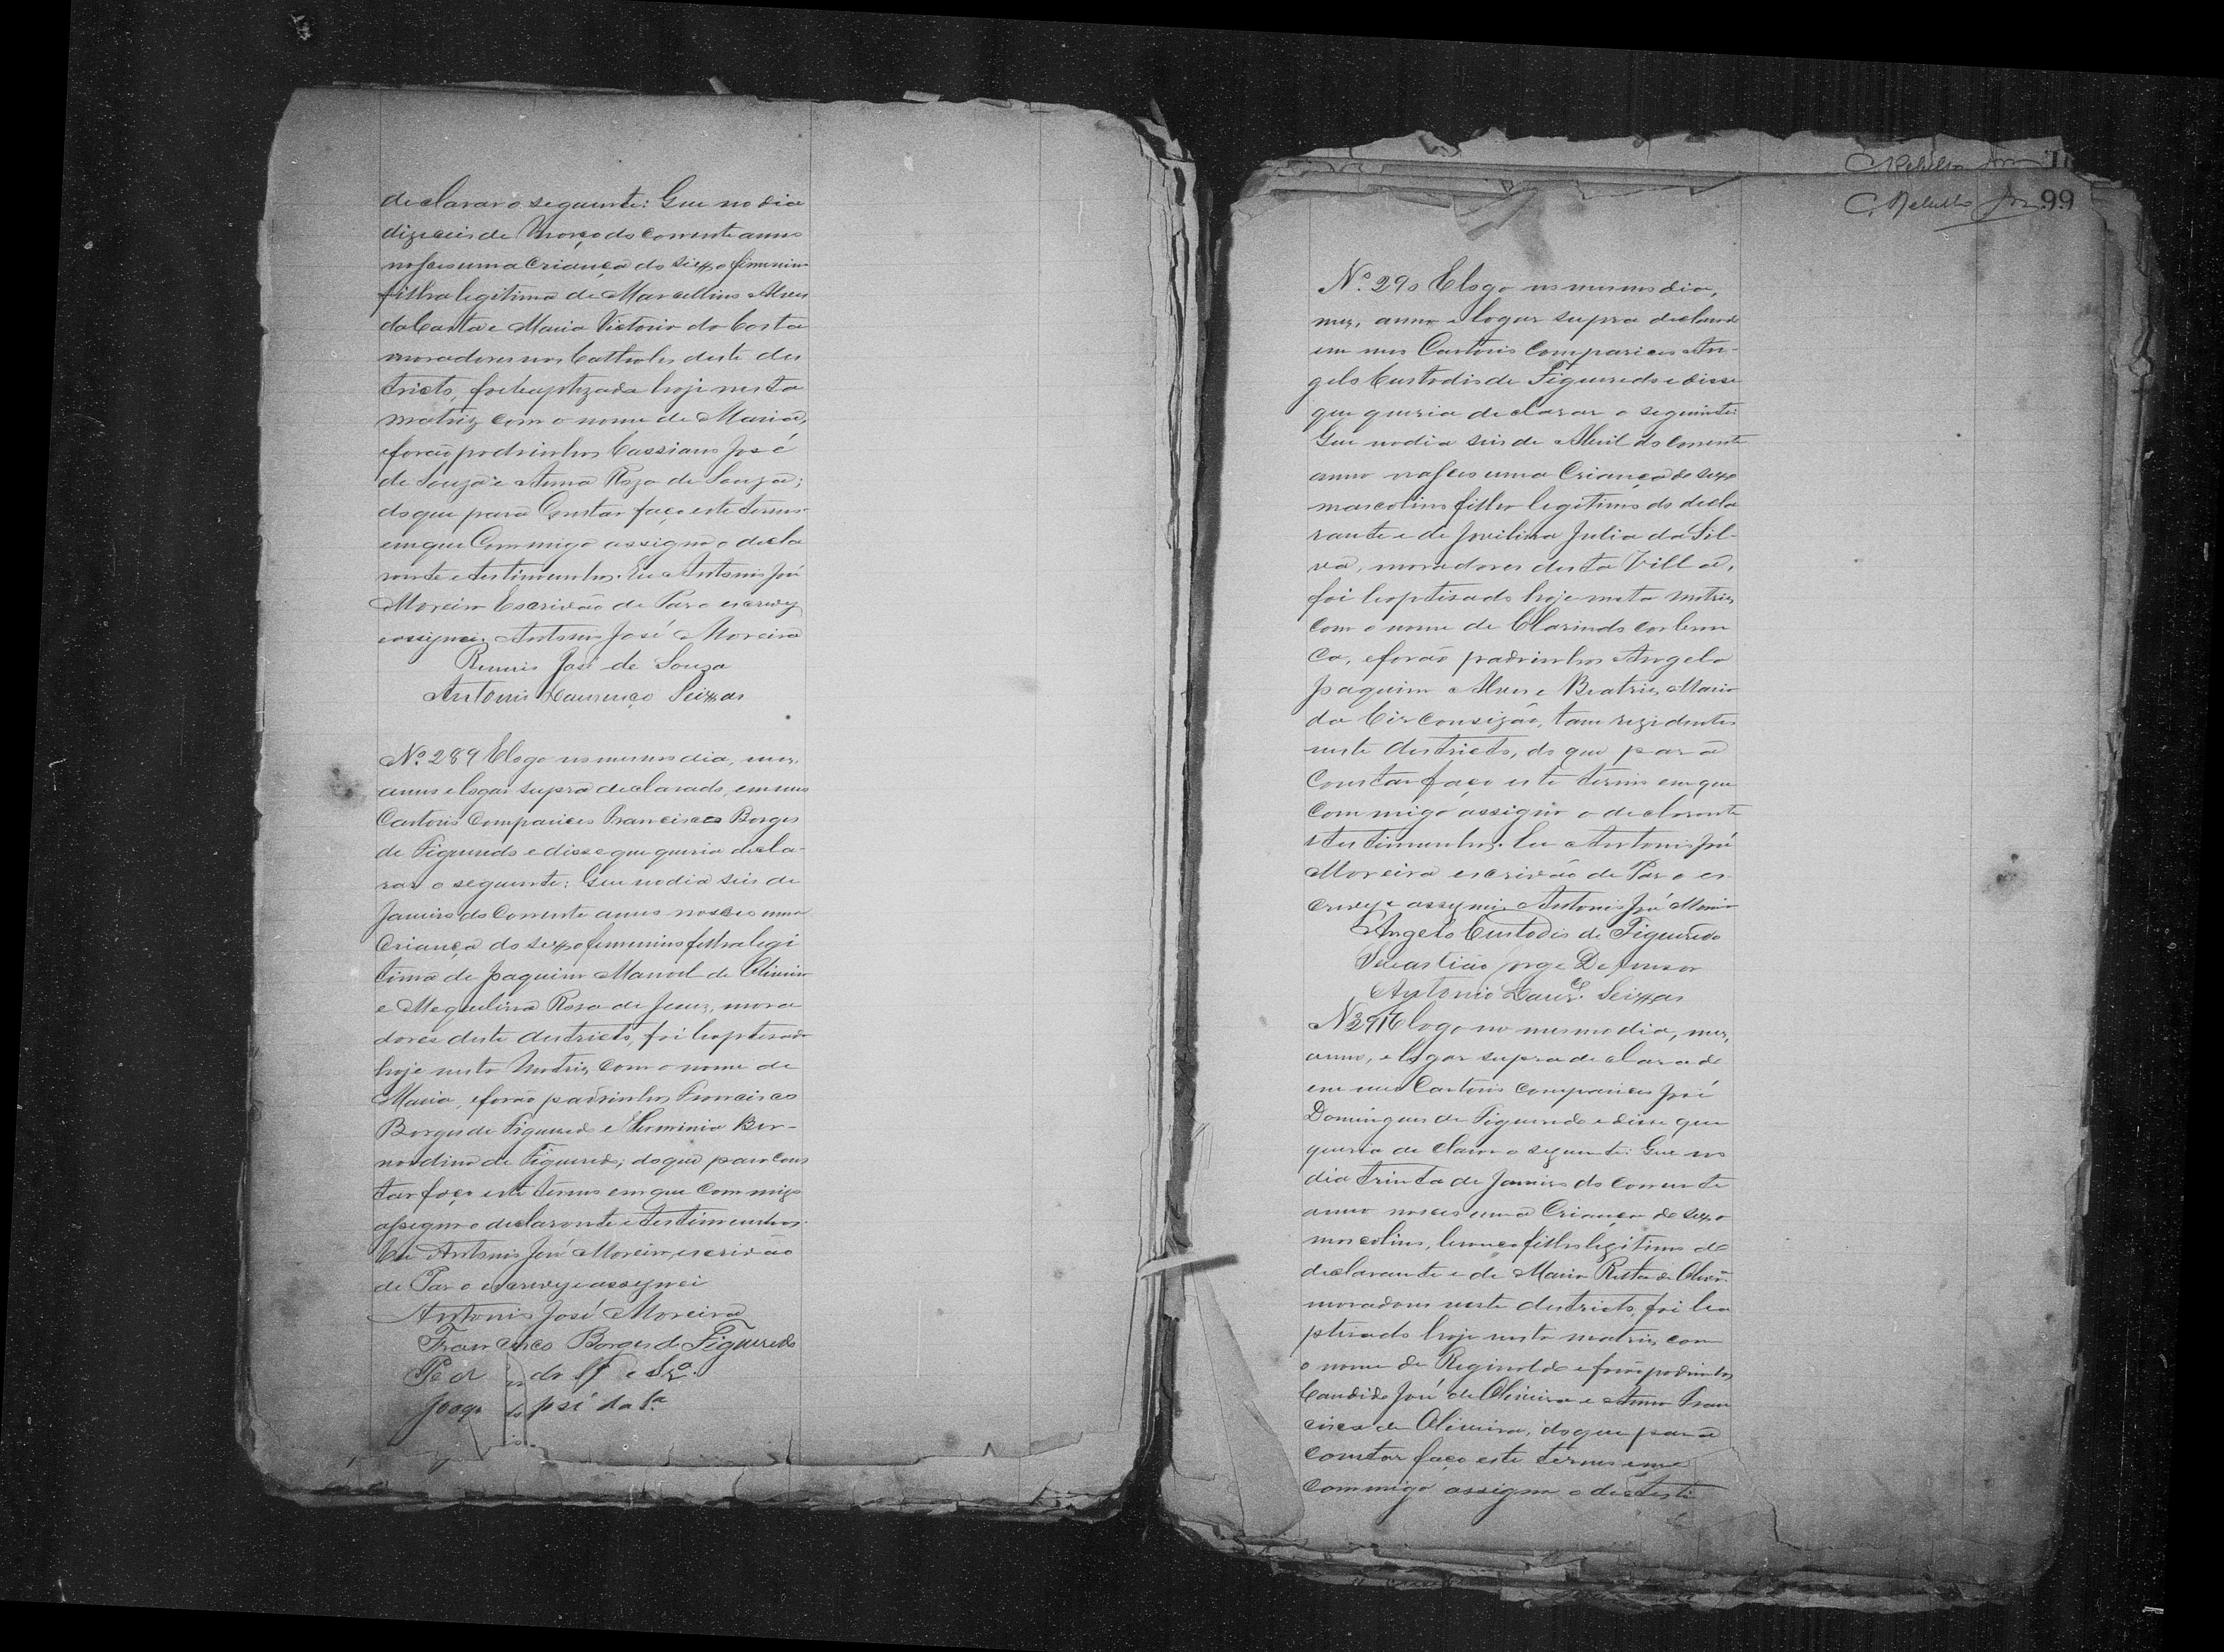 declarar o seguinte: Que no dia
dizaceis de Março do corrente anno
nasceu uma Criança do sexo feminin
filha legitima de Marcellino Alves
da Costa e Maria Victoria da Costa
moradores nos Catholes deste dis
tricto, foi baptizada hoje nesta
matriz com o nome de Maria,
e forão padrinhos Cassiano José
de Souza e Anna Roza de Souza;
do que para Constar faço este termo
em que Commigo assigna o decla
rante e testimunhas. Eu Antonio José
Moreira Escrivão de Paz o escrevy
e assignei. Antonio José Moreira
José de Souza
Antonio Lourenço Seixas
Nº 289 E logo no mesmo dia, mez,
anno e logar supra declarado, em meu
Cartorio Compareceu Francisco Borges
de Figueredo e disse que queria decla-
rar o seguinte: Que no dia seis de
Janeiro do Corrente anno nasceu uma
Criança do sexo femenino filha legi
tima de Joaquim Manoel de Oliveira
e Mequelina Rosa de Jesus, mora
dores deste districto, foi baptisada
hoje nesta Matriz com o nome de
Maria, e forão padrinhos Francisco
Borges de Figueredo e Herminia Ber-
nardina de Figueredo; do que para Cons
tar faço este termo em que Commigo
assigna o declarante e testimunhas.
Eu Antonio José Moreira, escrivão
de Paz o escrevy e assignei
Antonio José Moreira
Francisco Borges de Figueredo
Ped
Joaq José da Sª
C. Rebello Jor
C. Rebello Jor 99
Nº 290 E logo no mesmo dia,
mez, anno e logar supra declarado
em meu Cartorio Compareceu An-
gelo Custodio de Figueredo e disse
que queria declarar o seguinte:
Que no dia seis de Abril do Corrente
anno nasceu uma Criança do sexo
mascolino filho legitimo do decla
rante e de Jovilina Julia da Sil-
va, moradores desta Villa,
foi baptisado hoje nesta matriz
com o nome de Clarindo cor bran
ca, e forão padrinhos Angelo
Joaquim Alves e Beatriz Maria
da Circonsizão, tam rezidentes
neste districto, do que para
Constar faço este termo em que
Commigo assigna o declarante
e testimunhas. Eu Antonio José
Moreira escrivão de Paz o es
crevy e assignei. Antonio José Moreira
Angelo Custodio de Figueredo
Sebastião Jorge Defensor
Antonio Lourço Seixas
Nº 291 E logo no mesmo dia, mez,
anno, e logar supra declarado
em meu Cartorio compareceu José
Domingues de Figueredo e disse que
queria declarar o seguinte: Que no
dia trinta de Janeiro do corrente
anno nasceu uma Criança do sexo
mascolino, branco filho legitimo do
declarante e de Maria Ritta de Olivra
moradores neste districto, foi ba
ptisado hoje nesta matriz com
o nome de Reginaldo e forão padrinhos
Candido José de Oliveira e Anna Fran
cisca de Oliveira, do que para
constar faço este termo em
commigo assigna o dec testi